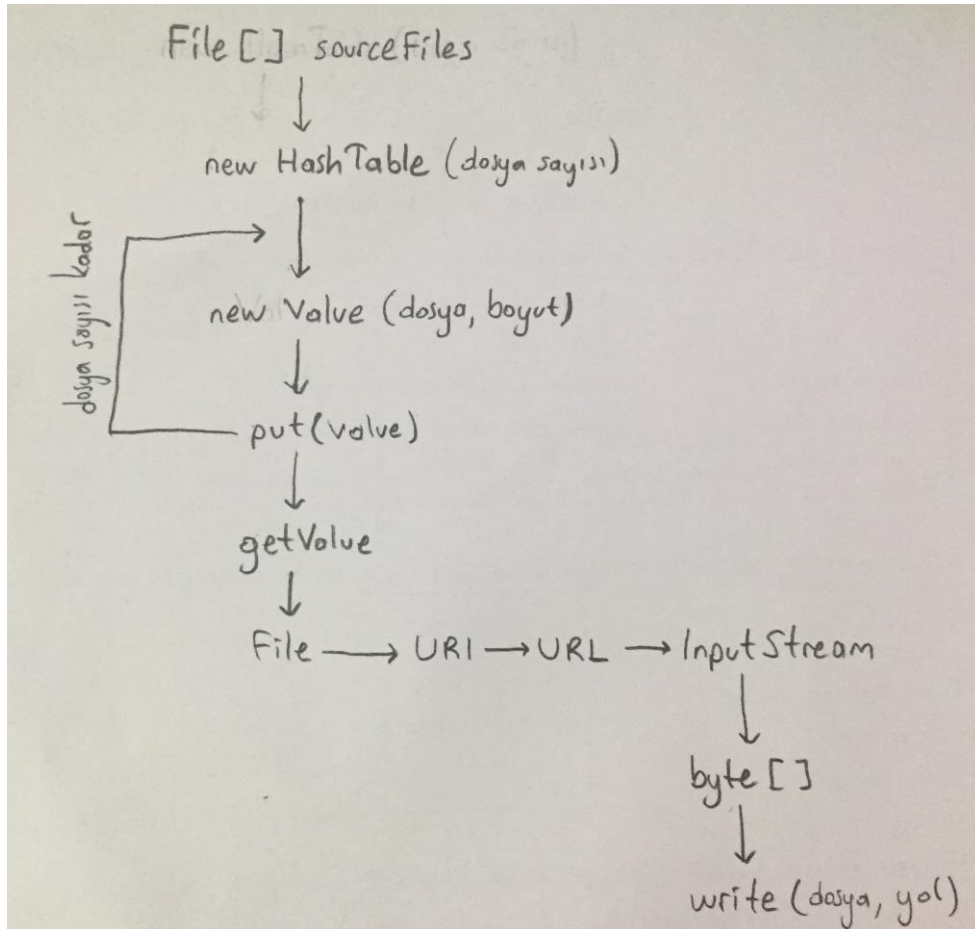 File [] sourceFiles
new HashTable (dosya sayısı)
dosya sayısı kadar
new Value (dosya, boyut)
put(value)
getValue
File → URI → URL → InputStream
byte []
write (dosya, yol)